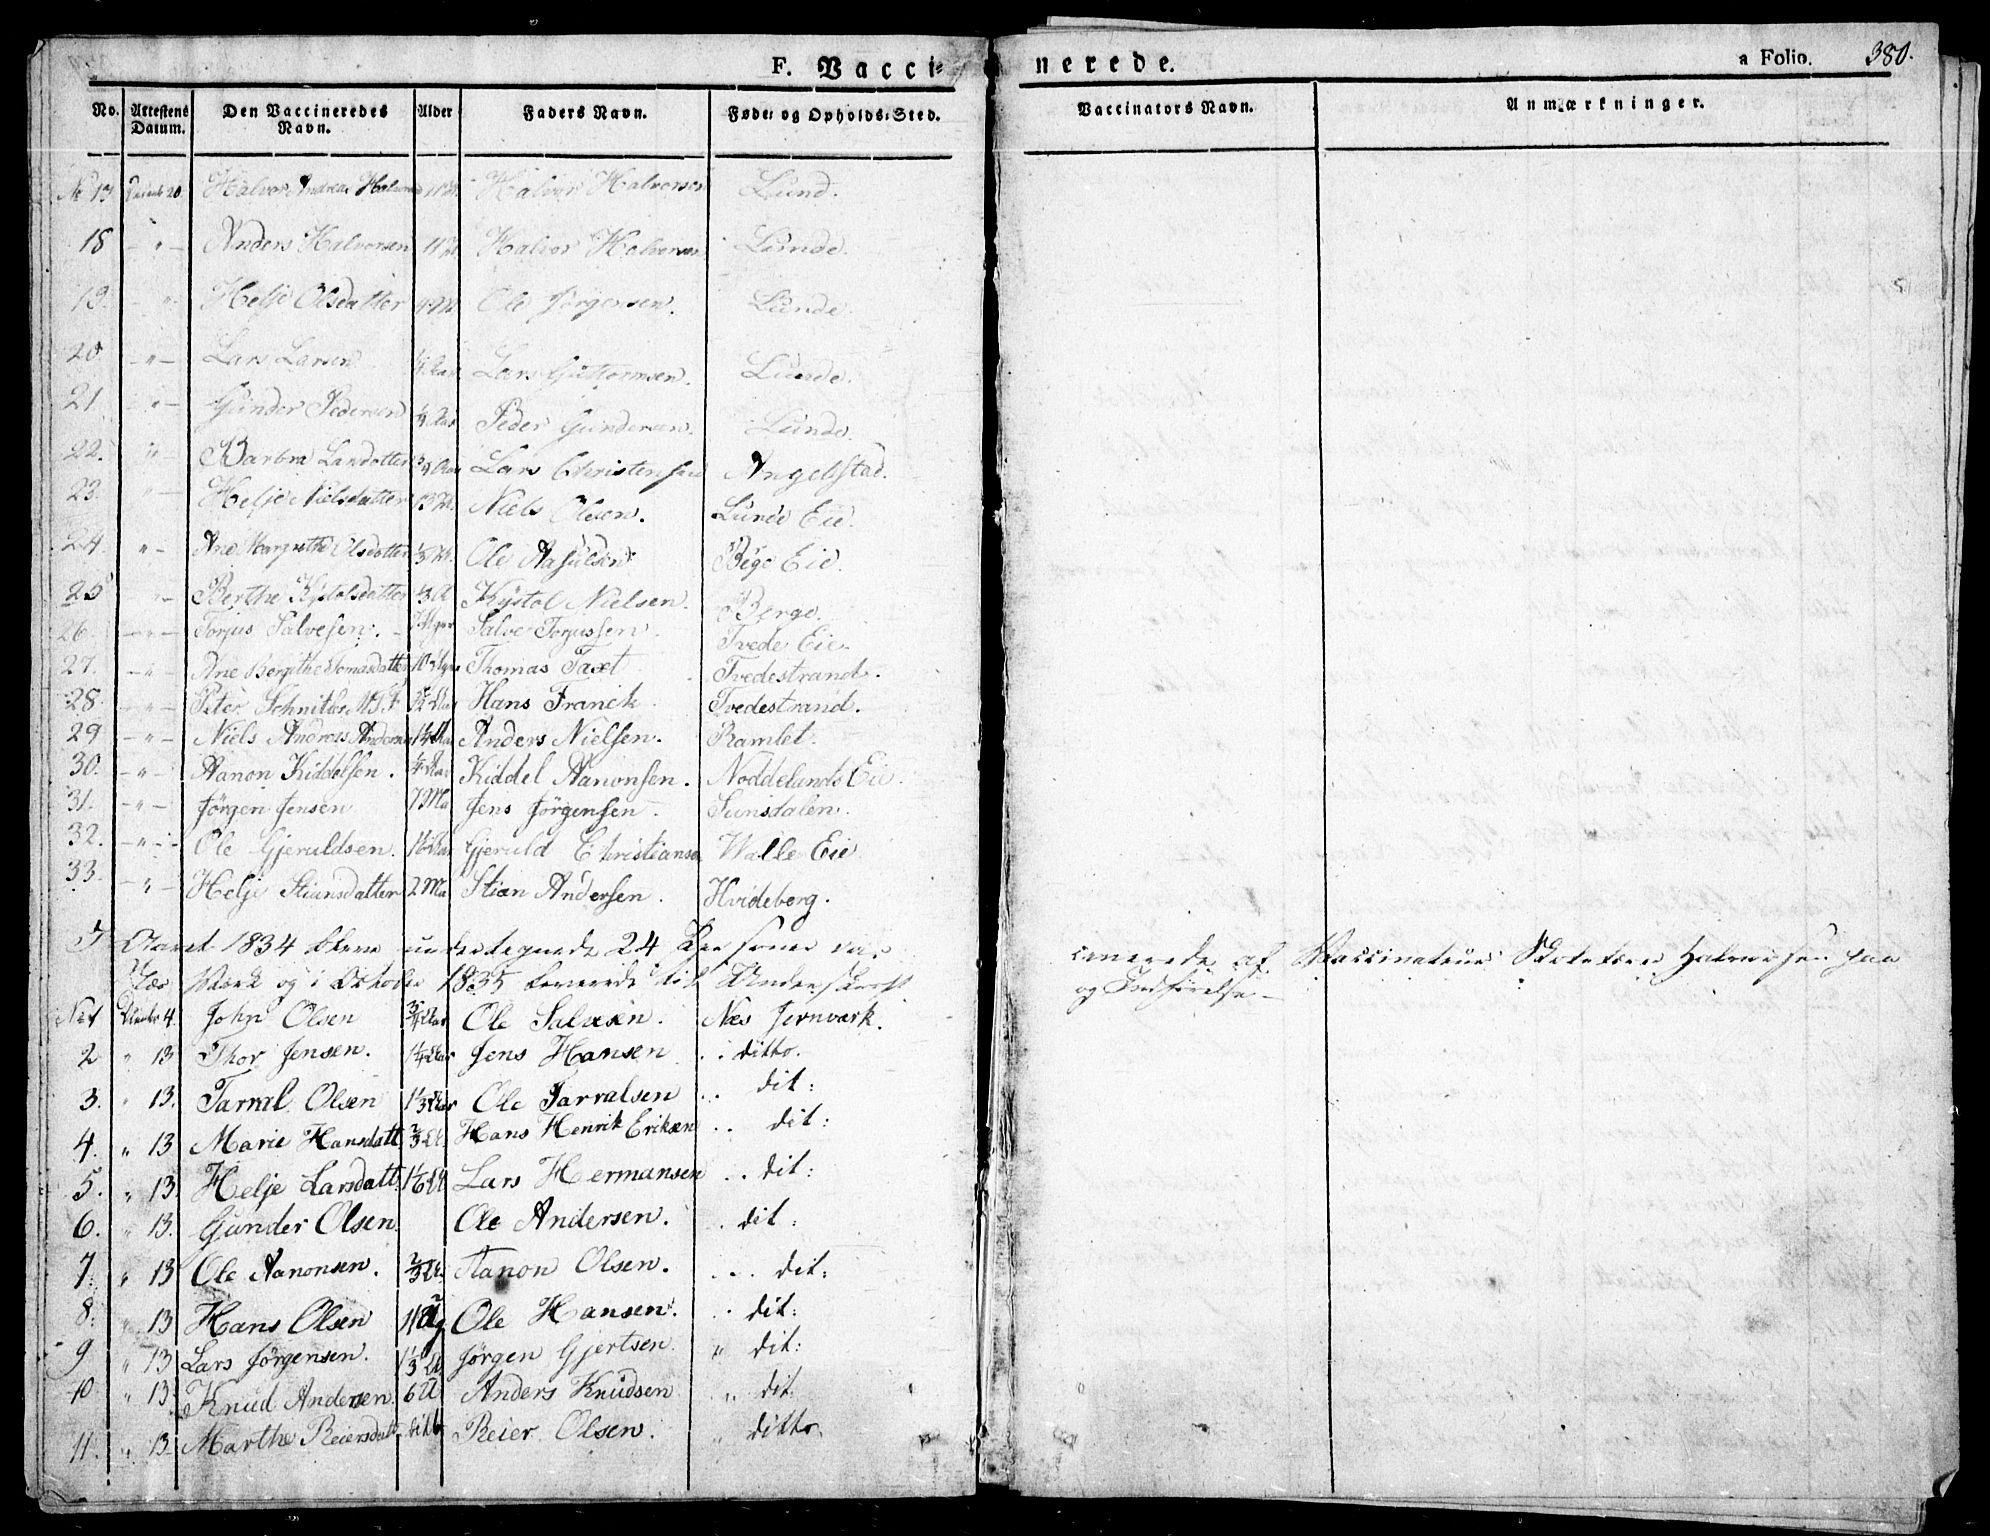 F. Vaccinerede.
a Folio. 380.
No. Attestens Datum. Den Vaccineredes Navn. Alder Faders Navn. Føde- og Opholds-Sted. Vaccinators Navn. Anmærkninger.
No 17 20 Halvor Andreas Halvorsen Halvor Halvorsen Lund.
18 " Anders Halvorsen Halvor Halvorsen Lunde.
19. " Helje Olsdatter Ole Jørgensen. Lunde.
20 " Lars Larsen ¼ Aar Lars Guttormsen. Lunde.
21. " Gunder Pedersen ¼ Aar Peder Gundersen. Lunde.
22. " Barbra Larsdatter ¾ Aar Lars Christensen Angelstad.
23. " Helje Nielsdatter Niels Olsen. Lunde Eie.
24. " Ane Margrethe Olsdatter Ole Aasulsen Berge Eie.
25 " Berthe Kystolsdatter Kystol Nielsen. Berge.
26. " Torjus Salvesen. Salve Torjussen. Tvede Eie.
27. " Ane Bergithe Tomasdatter Thomas Taxt Tvedestrand.
28. " Peter Schnitler Hans Franck Tvedestrand.
29 " Niels Andreas Andersen Anders Nielsen. Ramlet.
30. " Aanon Kiddelsen. Kiddel Aanonsen. Noddelands Eie.
31. " Jørgen Jensen 7 Ma Jens Jørgensen. Sunsdalen.
32. " Ole Gjeruldsen. Gjeruld Christiansen Walle Eie
33. " Helje Stiansdatter 2 Ma Stian Andersen. Hvideberg.
I Aaret 1834 bleve undertegnede 24 Personer vaccinerede af Vaccinateur Halvorsen paa
Næs Værk og i October 1835 leverede til Underskrift og Indførelse
No 1 4. John Olsen ¾ Aar Ole Salvesen. Næs Jernværk.
2 " 13 Thor Jensen. 1¼ Aar Jens Hansen ditto.
3. " 13. Tarral Olsen 1⅓ Aar Ole Tarralsen dit:
4. " 13 Marie Hansdatt ⅔ A. Hans Henrik Eriksen dit:
5. " 13 Helje Larsdatt. 1⅙ A Lars Hermansen dit:
6. " 13. Gunder Olsen. Ole Andersen. dit:
7. " 13 Ole Aanonsen. ⅔ A. Aanon Olsen. dit:
8. " 13 Hans Olsen Ole Hansen. dit:
9 " 13 Lars Jørgensen. 1⅓ A Jørgen Gjertsen " dit:
10 " 13. Knud Andersen 6 A Anders Knudsen " dit.
11. " 13. Marthe Reiersdatt. ditto Reier Olsen. " ditto.